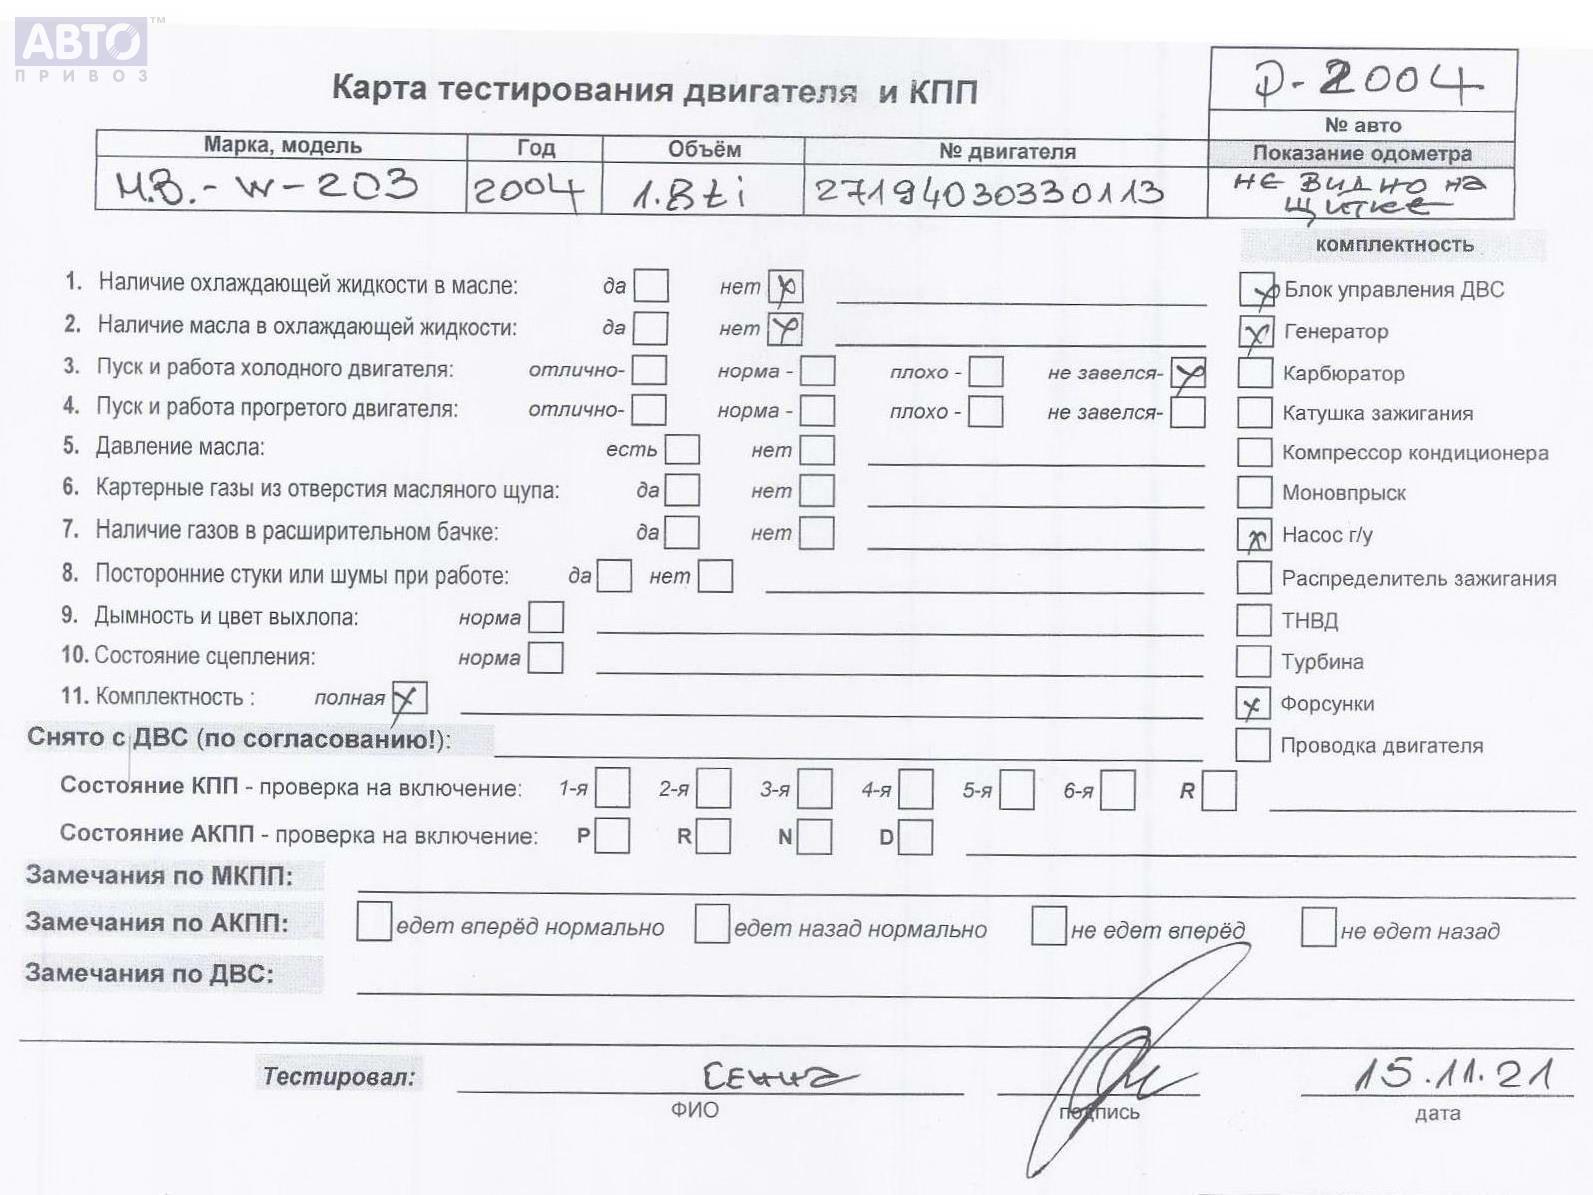 АВТО ™
ПРИВОЗ
Карта тестирования двигателя и КПП
P-2004
№ авто
Марка, модель Год Объём № двигателя Показание одометра
M.B.-W-203 2004 1.8ti 27194030330113 НЕ ВИДНО НА
ЩИТКЕ
комплектность
1. Наличие охлаждающей жидкости в масле: да нет x Блок управления ДВС
2. Наличие масла в охлаждающей жидкости: да нет x Генератор
3. Пуск и работа холодного двигателя: отлично- норма - плохо - не завелся- x Карбюратор
4. Пуск и работа прогретого двигателя: отлично- норма - плохо - не завелся- Катушка зажигания
5. Давление масла: есть нет Компрессор кондиционера
6. Картерные газы из отверстия масляного щупа: да нет Моновпрыск
7. Наличие газов в расширительном бачке: да нет x Насос г/у
8. Посторонние стуки или шумы при работе: да нет Распределитель зажигания
9. Дымность и цвет выхлопа: норма ТНВД
10. Состояние сцепления: норма Турбина
11. Комплектность : полная x x Форсунки
Снято с ДВС (по согласованию!): Проводка двигателя
Состояние КПП - проверка на включение: 1-я 2-я 3-я 4-я 5-я 6-я R
Состояние АКПП - проверка на включение: P R N D
Замечания по МКПП:
Замечания по АКПП: едет вперёд нормально едет назад нормально не едет вперёд не едет назад
Замечания по ДВС:
Тестировал: 15.11.21
ФИО подпись дата